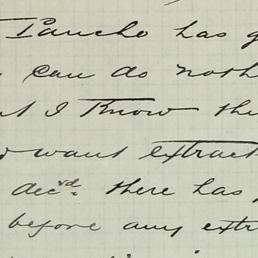 Pancho has g
can do noth
t I Know the
want extract
decrd there has
before any extr